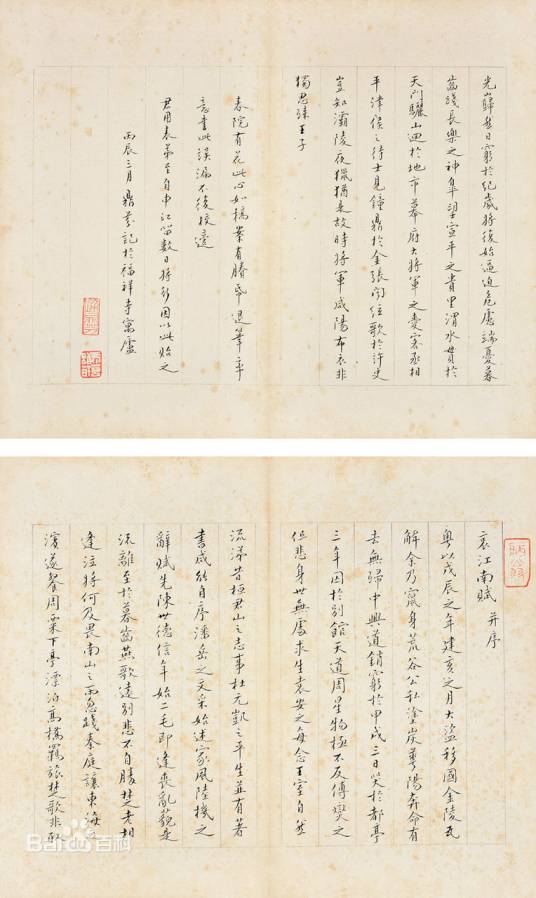 光巋然日窮於紀歲將復始逼迫危慮端憂暮
齒踐長樂之神皋望宣平之貴里渭水貫於
天門驪山迴於地市幕府大將軍之愛客丞相
平津侯之待士見鐘鼎於金張聞弦歌於許史
豈知灞陵夜獵猶是故時將軍咸陽布衣非
獨思歸王子
春院有花此心如槁案有賸帋退筆率
意書此誤漏不復校還
君用表弟至自申江留數日將行因以此貽之
丙辰三月鼎芬記於福祥寺寓廬
哀江南賦 并序
粵以戊辰之年建亥之月大盜移國金陵瓦
解余乃竄身荒谷公私塗炭華陽奔命有
去無歸中興道銷窮於甲戌三日哭於都亭
三年囚於別館天道周星物極不反傅燮之
但悲身世無處求生袁安之每念王室自然
流涕昔桓君山之志事杜元凱之平生並有著
書咸能自序潘岳之文采始述家風陸機之
辭賦先陳世德信年始二毛即逢喪亂藐是
流離至於暮齒燕歌遠別悲不自勝楚老相
逢泣將何及畏南山之雨忽踐秦庭讓東海之
濱遂餐周粟下亭漂泊高橋羈旅楚歌非取
Bai 百科